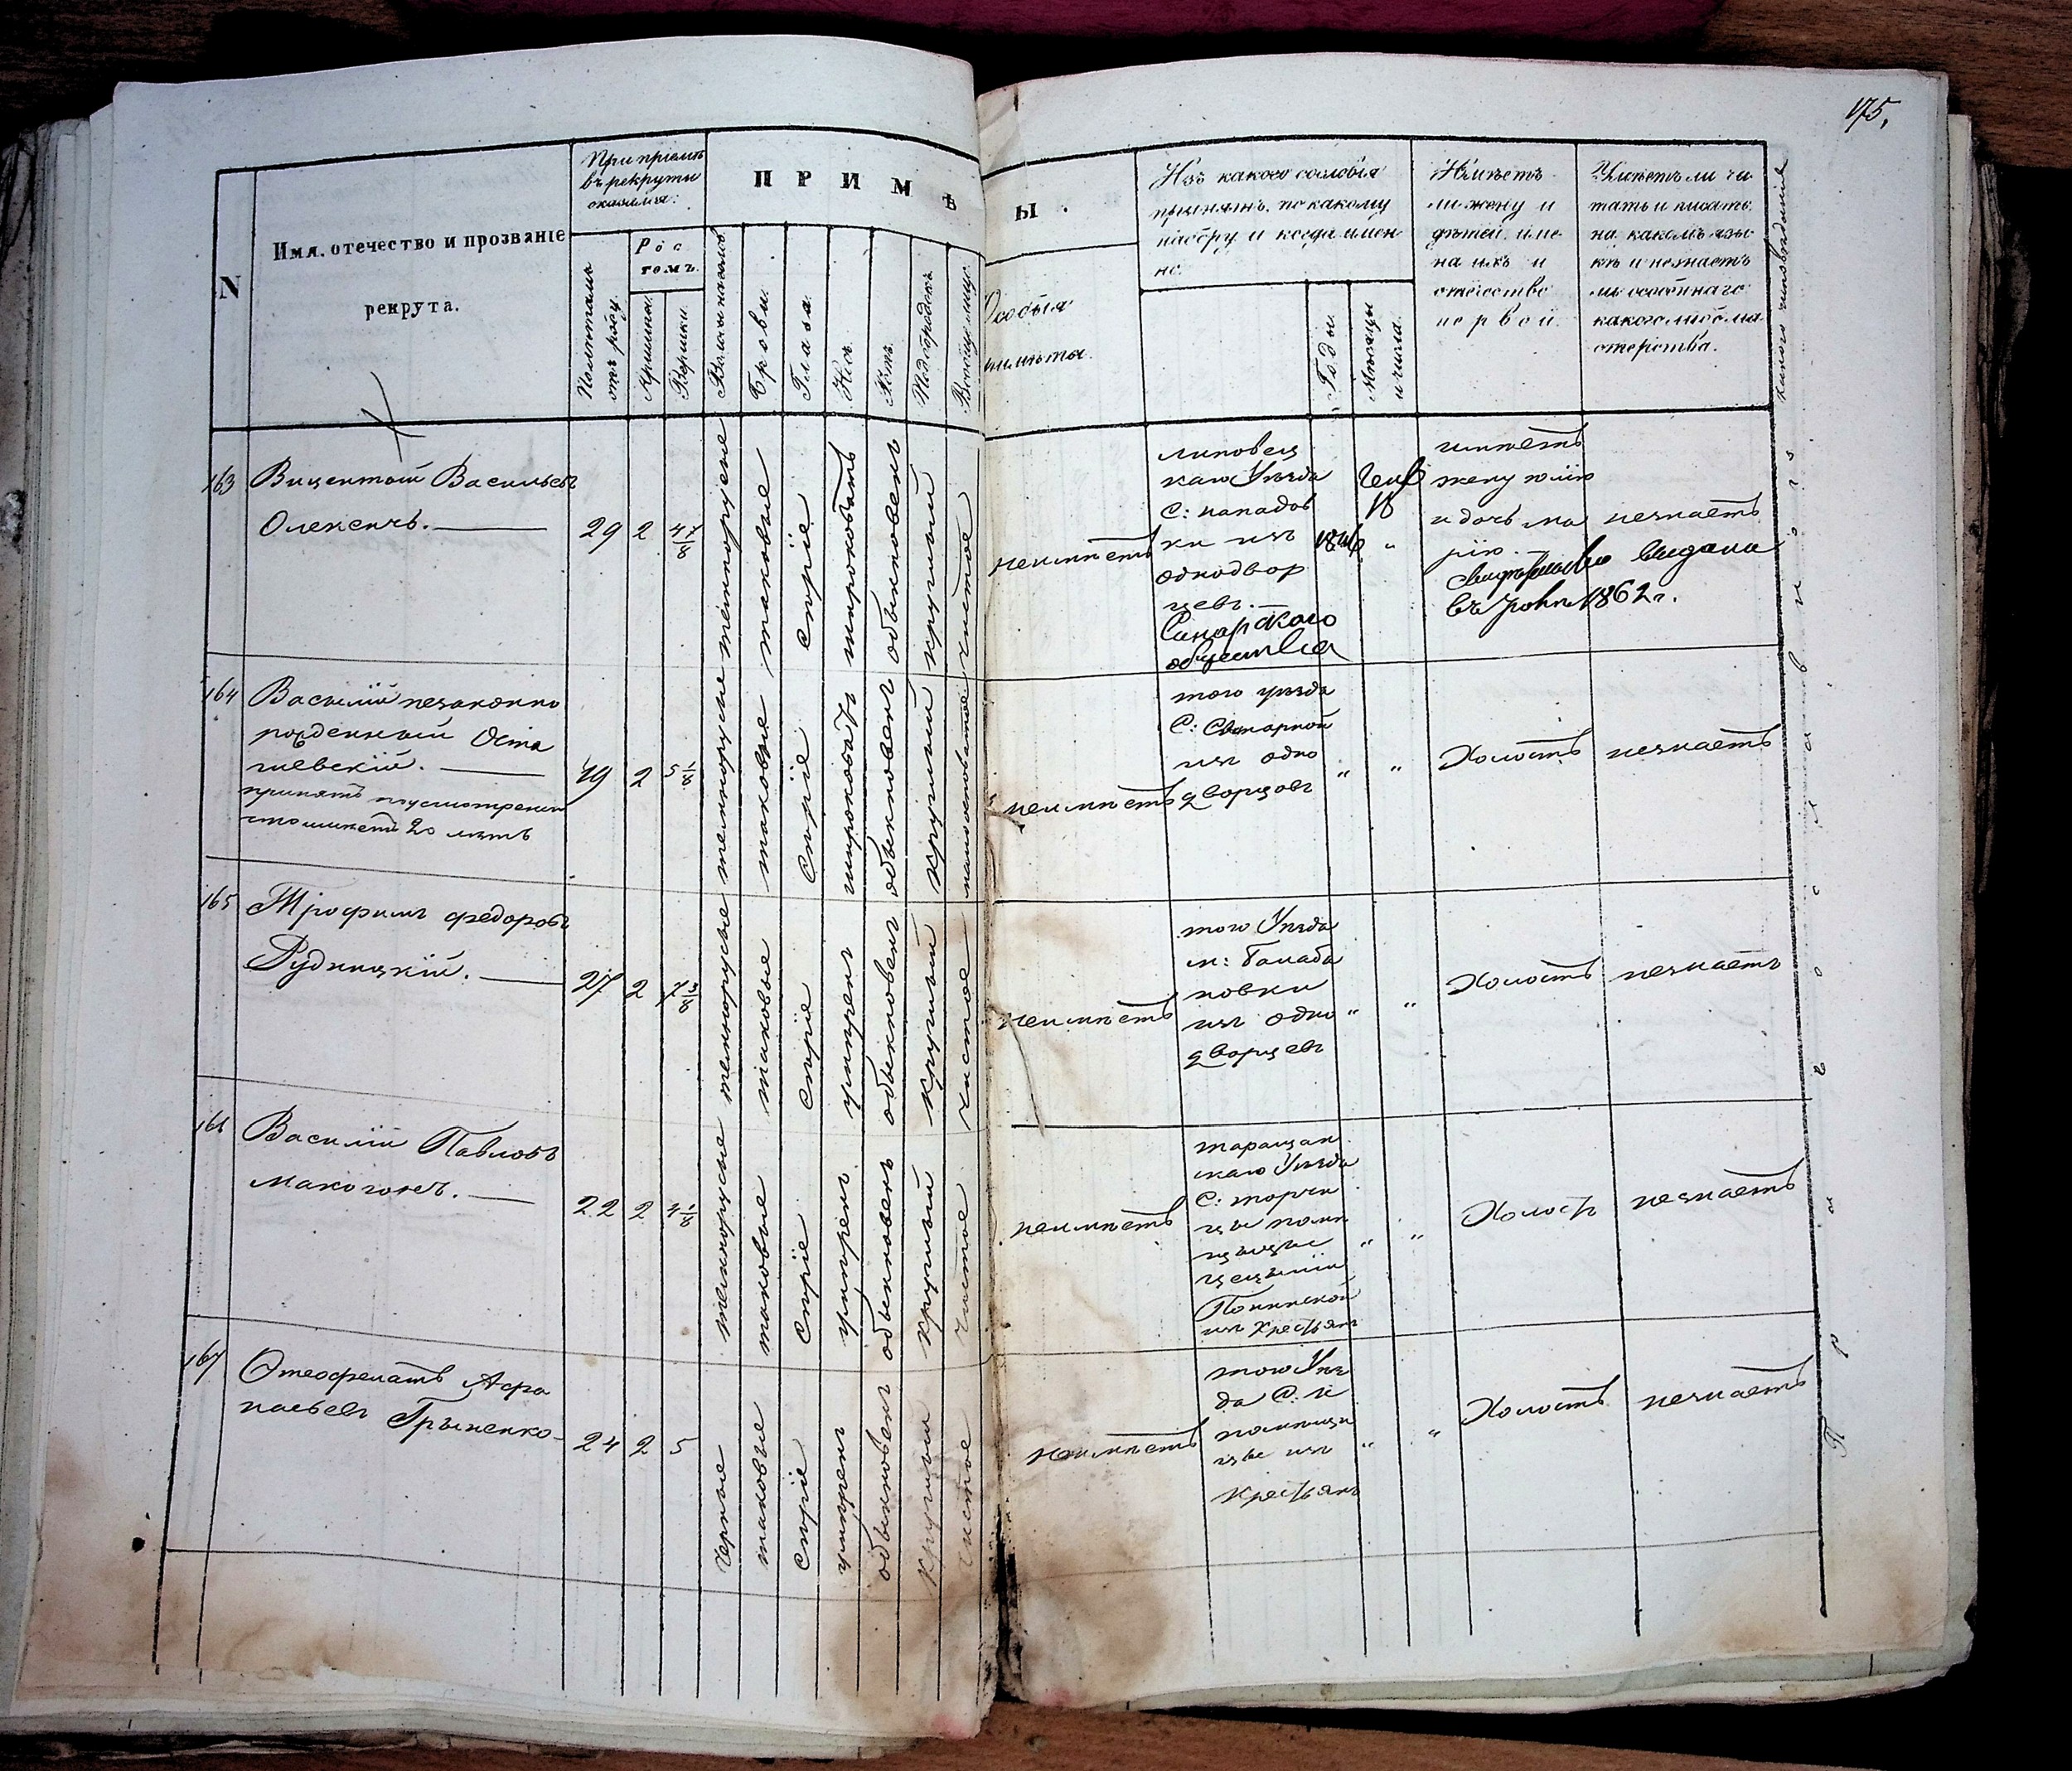 175,
N
Имя, отечество и прозваніе
рекрута.
При пріемѣ
въ рекруты
оказался:
Полнталъ
отъ роду.
Рос
томъ.
Аршины.
Вершки.
ПРИМѢ
Брови.
Глаза.
Носъ.
Ротъ.
Подбородокъ.
Вообще лице.
Ы.
Особыя
примѣты.
Изъ какого сословія
принятъ, по какому
набору и когда имен
но.
Годы.
Мѣсяцы
и числа.
Имѣетъ
ли жену и
дѣтей, име
на ихъ и
отечество
первой.
Умѣетъ ли чи
тать и писать,
на какомъ язы
кѣ и незнаетъ
ли особеннаго
какого либо ма
стерства.
163
Вицентій Васильевъ
Олексичъ.
29
2
4 7/8
темнорусые
таковые
сѣрые
широковатъ
обыкновенъ
круглый
чистое
неимѣетъ
липовец
каго Уѣзда
С: нападов
ки изъ
однодвор
цевъ.
общества
1846
18
имѣетъ
жену юлію
и дочь ма
рію.
выдано
1862 г.
незнаетъ
164
Василій незаконно
рожденный Оста
шевскій.
принятъ поусмотренію
что имѣетъ 20 лѣтъ
19
2
5 1/8
темнорусые
таковые
сѣрые
широковатъ
обыкновенъ
круглый
неимѣетъ
того уѣзда
С:
изъ одно
дворцовъ
"
"
Холостъ
незнаетъ
165
Трофимъ федоровъ
Рудницкій.
27
2
7 3/8
темнорусые
таковые
сѣрые
умѣренъ
обыкновенъ
круглый
чистое
неимѣетъ
того Уѣзда
м: Балаба
новки
изъ одно
дворцевъ
"
"
Холостъ
незнаетъ
166
Василій Павловъ
Макогонъ.
22
2
4 1/8
темнорусые
таковые
сѣрые
умѣренъ
обыкновенъ
круглый
чистое
неимѣетъ
таращан
скаго Уѣзда
С: торчи
цы помѣ
щицы
Цециліи
изъ Крестьянъ
"
"
Холостъ
незнаетъ
167
Афа
насьевъ Грыненко
24
2
5
Черные
таковые
сѣрые
умѣренъ
обыкновенъ
круглый
чистое
неимѣетъ
того Уѣз
да С. и
помѣщи
цы изъ
Крестьянъ
"
"
Холостъ
незнаетъ